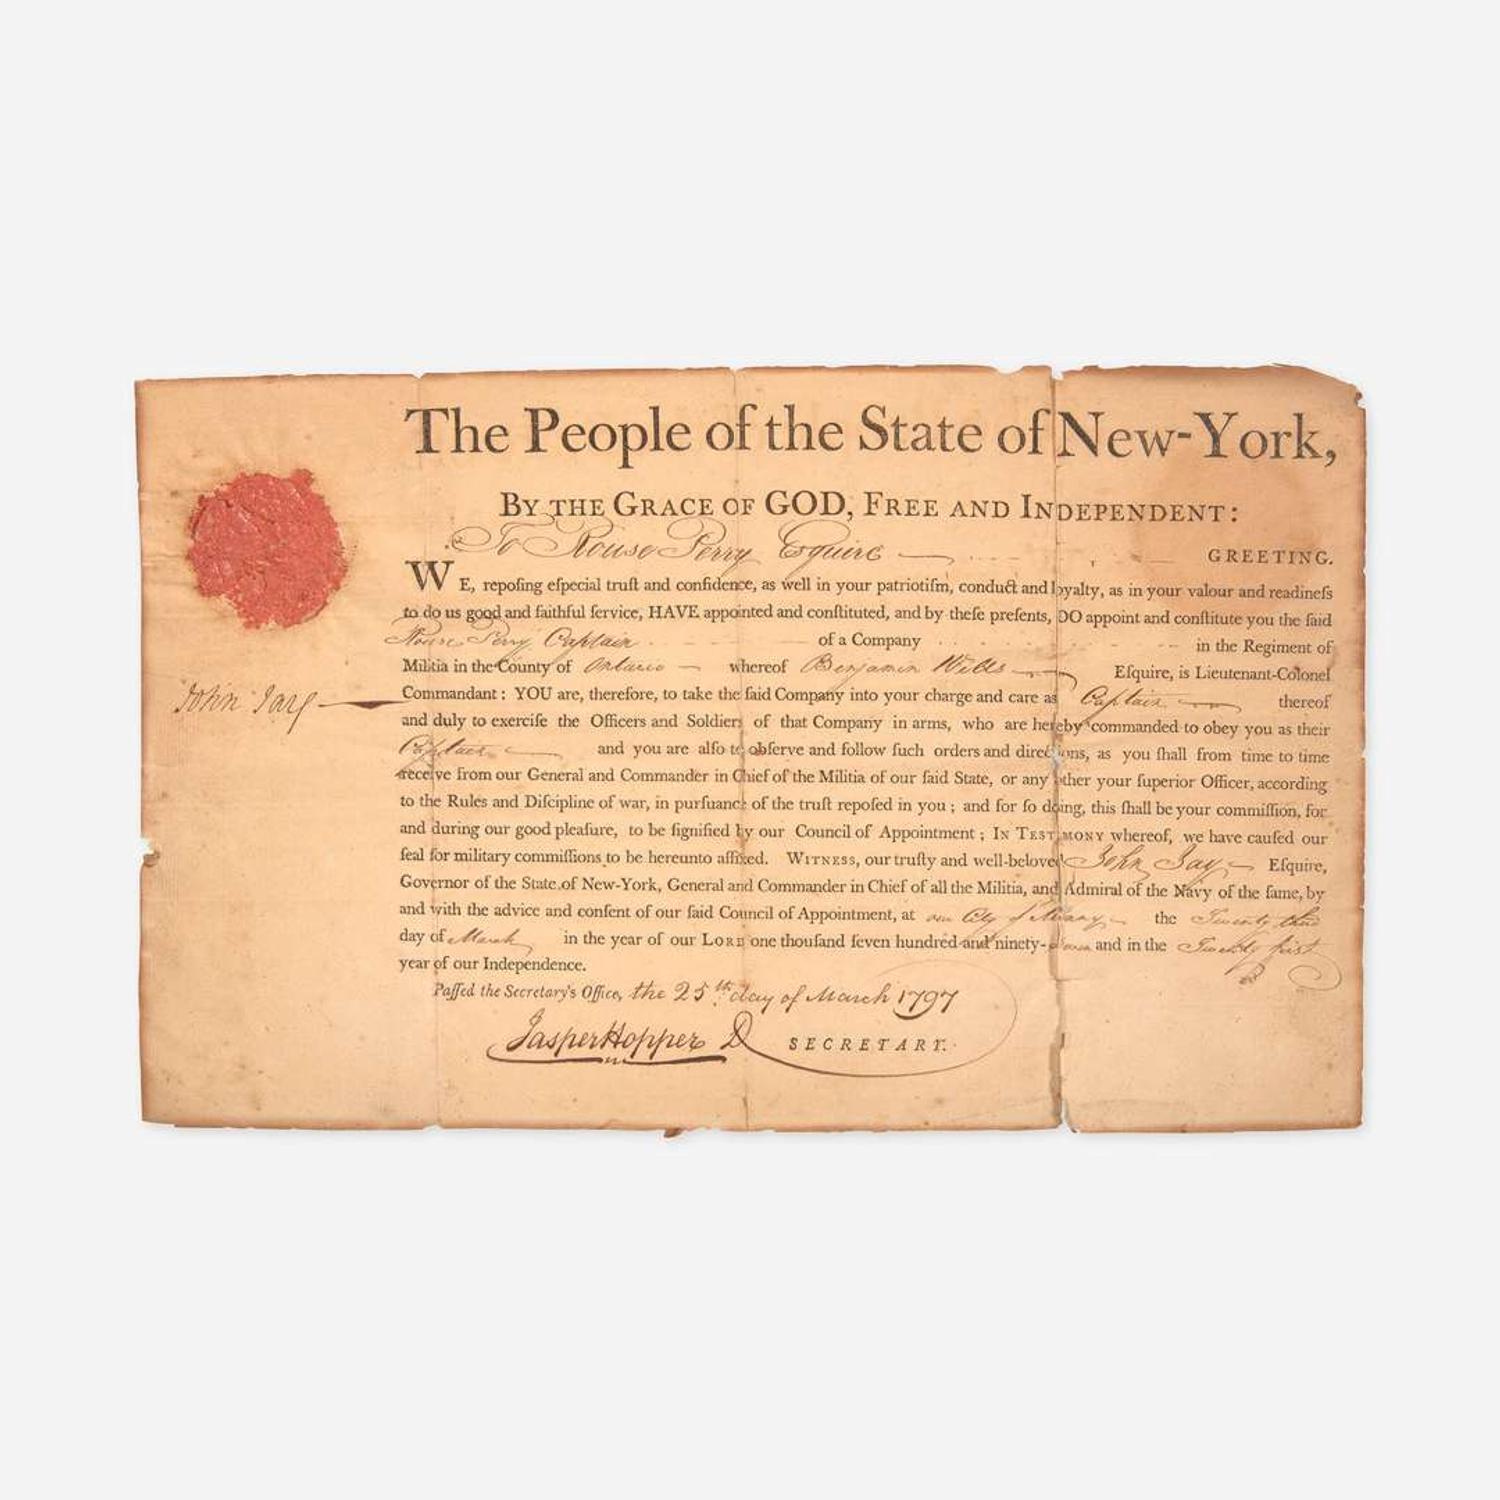 The People of the State of New-York,
By the Grace of GOD, Free and Independent:
To Rouse Perry Esquire GREETING.
WE, repoſing eſpecial truſt and confidence, as well in your patriotiſm, conduct and loyalty, as in your valour and readineſs
to do us good and faithful ſervice, HAVE appointed and conſtituted, and by theſe preſents, DO appoint and conſtitute you the ſaid
Rouse Perry Captain of a Company in the Regiment of
Militia in the County of Ontario whereof Benjamin Wells Eſquire, is Lieutenant-Colonel
John Jay
Commandant: YOU are, therefore, to take the ſaid Company into your charge and care as Captain thereof
and duly to exerciſe the Officers and Soldiers of that Company in arms, who are hereby commanded to obey you as their
Captain and you are alſo to obſerve and follow ſuch orders and directions, as you ſhall from time to time
receive from our General and Commander in Chief of the Militia of our ſaid State, or any other your ſuperior Officer, according
to the Rules and Diſcipline of war, in purſuance of the truſt repoſed in you; and for ſo doing, this ſhall be your commiſſion, for
and during our good pleaſure, to be ſignified by our Council of Appointment; In Testimony whereof, we have cauſed our
ſeal for military commiſſions to be hereunto affixed. Witness, our truſty and well-beloved John Jay Eſquire,
Governor of the State of New-York, General and Commander in Chief of all the Militia, and Admiral of the Navy of the ſame, by
and with the advice and conſent of our ſaid Council of Appointment, at our City of Albany the Twenty third
day of March in the year of our Lord one thouſand ſeven hundred and ninety-seven and in the Twenty first
year of our Independence.
Paſſed the Secretary's Office, the 25th day of March 1797
Jasper Hopper D SECRETARY.